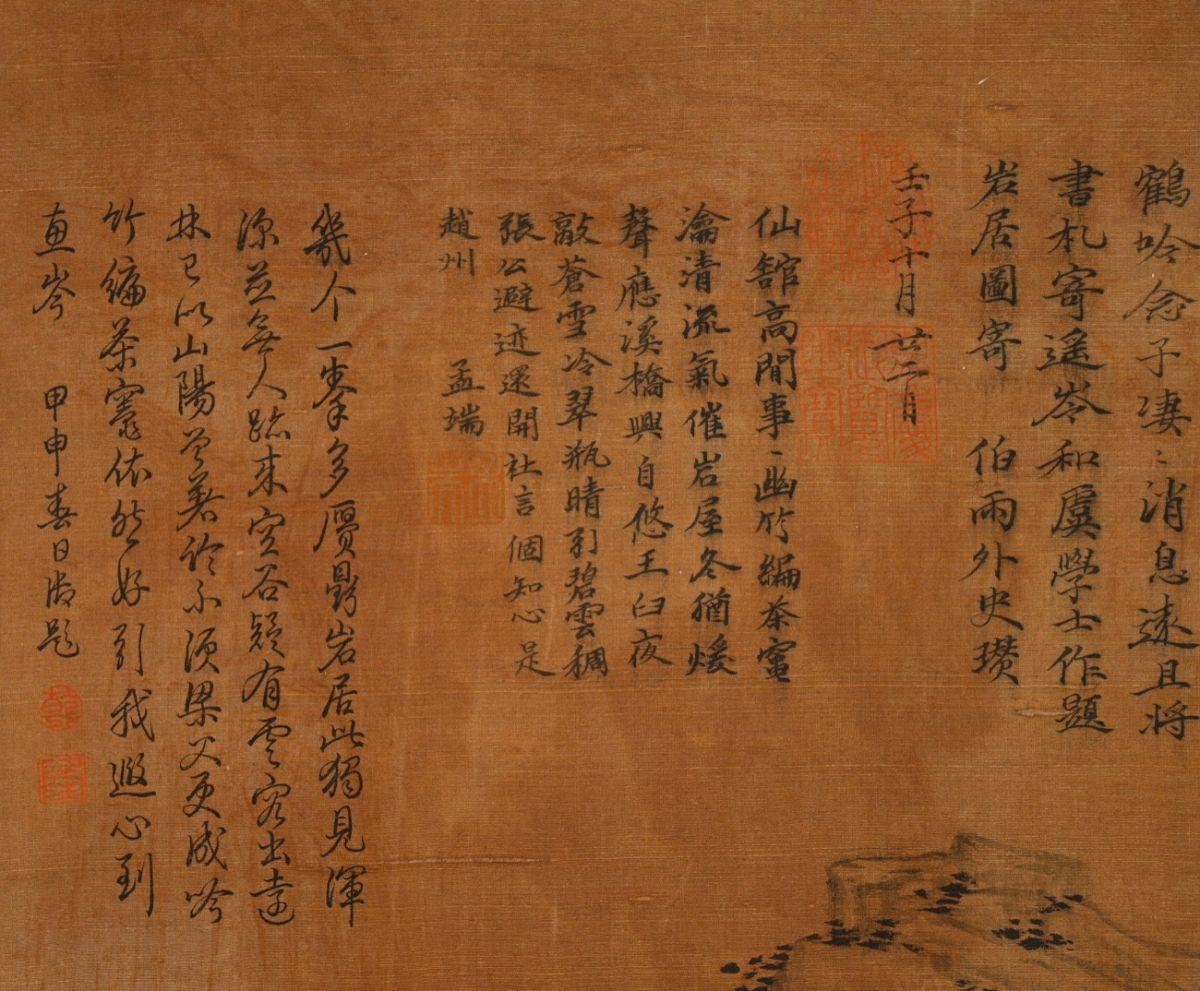 鶴吟念子凄〻消息遠且将
書札寄遥岑和虞學士作題
岩居圖寄 伯雨外史瓚
壬子十月廿三日
仙館高閒事〻幽竹編茶竈
瀹清流氣催岩屋冬猶煖
聲應溪橋興自悠玉臼夜
敲蒼雪冷翠瓶晴引碧雲稠
張公避迹還開社言個知心是
趙州 孟端
幾个一峯多贋鼎岩居此獨見渾
深並無人跡来空谷疑有雲容出遠
林已似山陽曾著論不須梁父更成吟
竹編茶竈依然好引我遐心到
惠岑 甲申春日御題